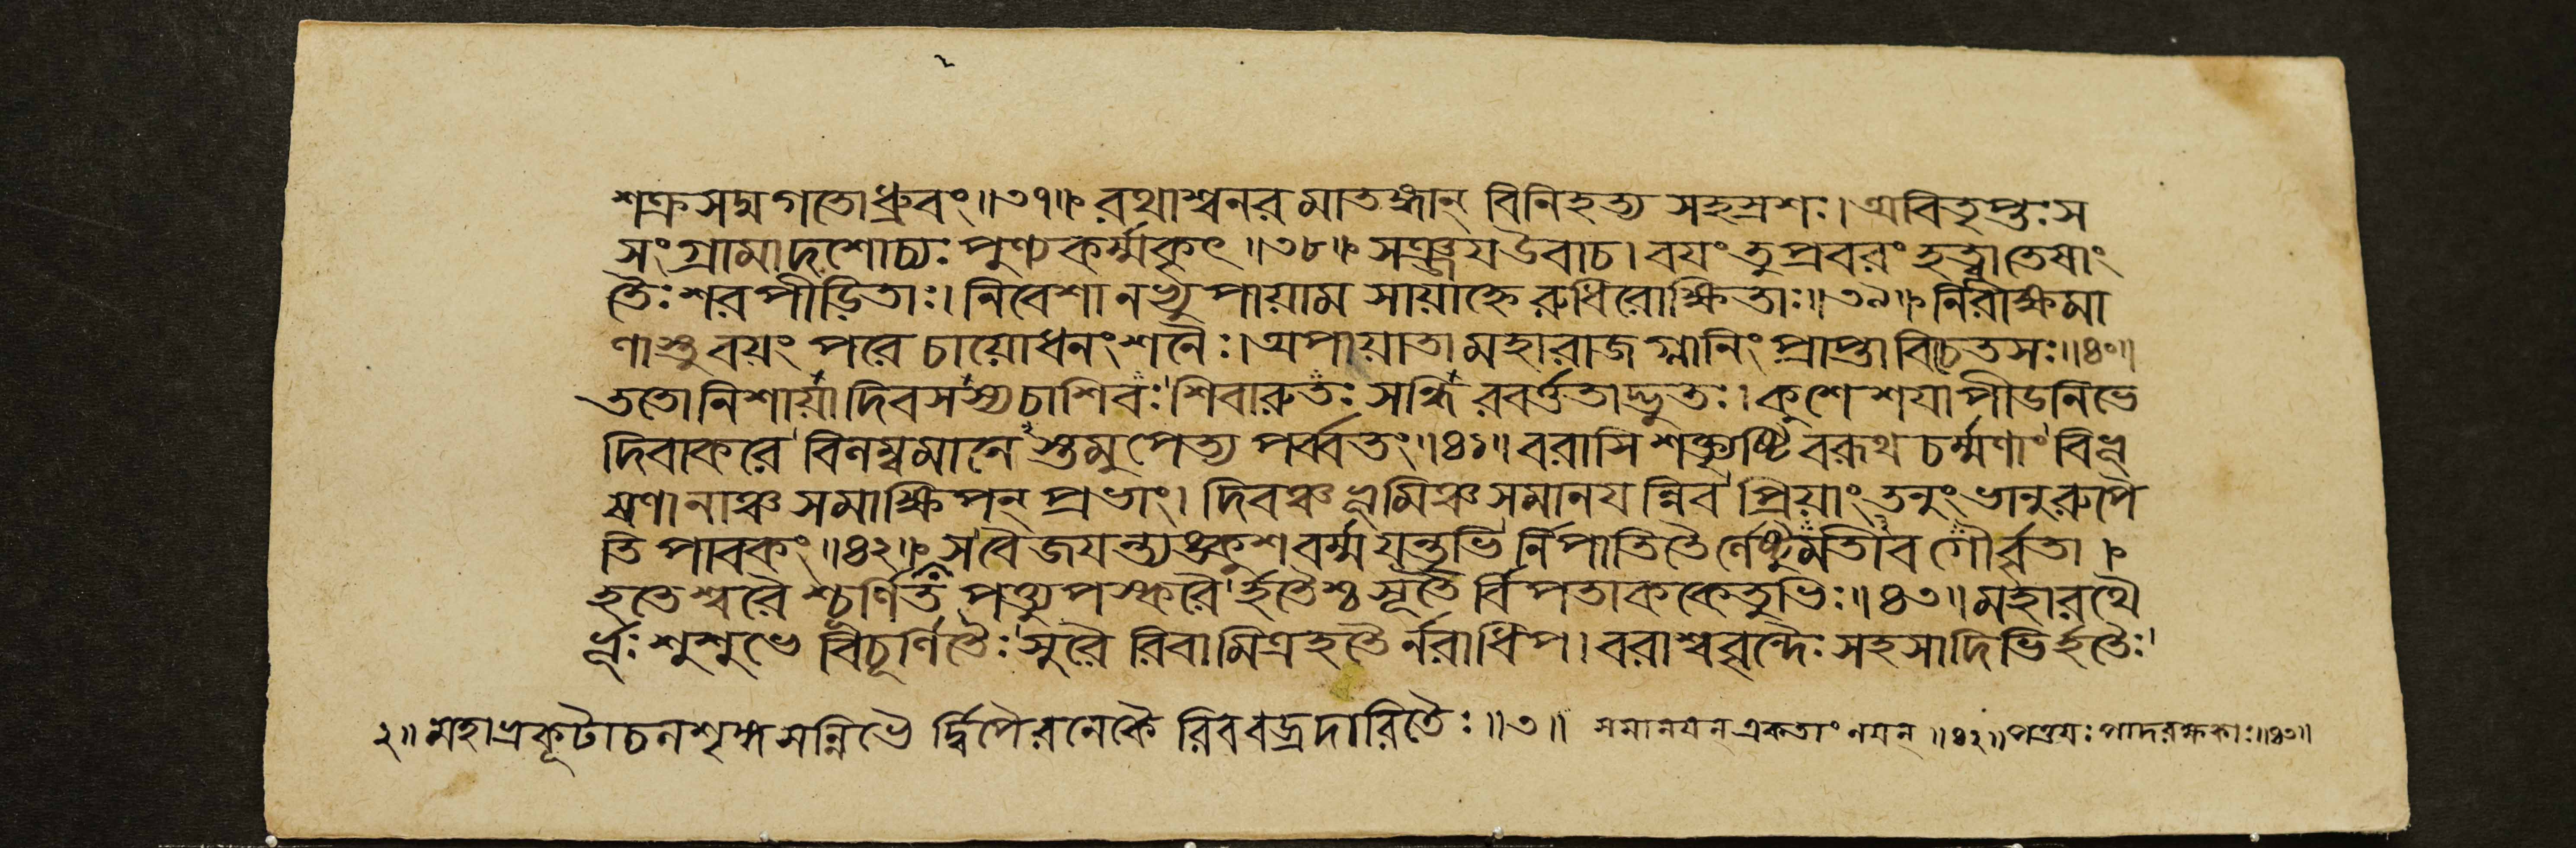 শক্রসদ্মগতোধ্রুবং॥৩৭॥ রথাশ্বনরমাতঙ্গান্ বিনিহত্য সহস্রশঃ। অবিতৃপ্তঃস
সংগ্রামাদশোচ্যঃ পুণ্যকর্ম্মকৃৎ॥৩৮॥ সঞ্জয়উবাচ। বয়ংতুপ্রবরংহত্বাতেষাং
তৈঃশরপীড়িতাঃ। নিবেশানভ্যুপায়াম সায়াহ্নেরুধিরোক্ষিতাঃ॥৩৯॥ নিরীক্ষমা
ণাস্তুবয়ং পরেচায়োধনংশনৈঃ। অপায়াতামহারাজগ্লানিংপ্রাপ্তাবিচেতসঃ॥৪০॥
ততোনিশায়াদিবসস্যচাশিবঃশিবারুতঃ সন্ধিরবর্ত্ততাদ্ভুতঃ। কুশেশয়াপীডনিভে
দিবাকরে বিলম্বমানেস্তমুপেত্য পর্ব্বতং॥৪১॥ বরাসিশক্ত্যৃষ্টিবরূথচর্ম্মণাংবিভূ
ষণানাঞ্চসমাক্ষিপন্ প্রভাং। দিবঞ্চভূমিঞ্চসমানয়ন্নিব প্রিয়াংতনুংভানুরুপৈ
তিপাবকং॥৪২॥ সবৈজয়ন্ত্যঙ্কুশবর্ম্মযন্তৃভির্নিপাতিতৈর্নেষ্টুমতীবগৌর্বৃতা।
হতেশ্বরৈশ্চূর্ণিতপত্ত্যুপস্করৈর্হতৈশ্বসূতৈর্বিপতাককেতুভিঃ॥৪৩॥ মহারথৈ
র্ভূঃশুশুভে বিচূর্ণিতৈঃসুরৈরিবামিত্রহতৈর্নরাধিপ। বরাশ্ববৃন্দৈঃ সহসাদিভির্হতৈঃ
২॥ মহাভ্রকূটাচলশৃঙ্গসন্নিভৈর্দ্বিপৈরনেকৈরিববজ্রদারিতৈঃ॥৩॥ সমানয়ন্ একতাংনয়ন্॥৪২॥ পত্তয়ঃপাদরক্ষকাঃ॥৪৩॥